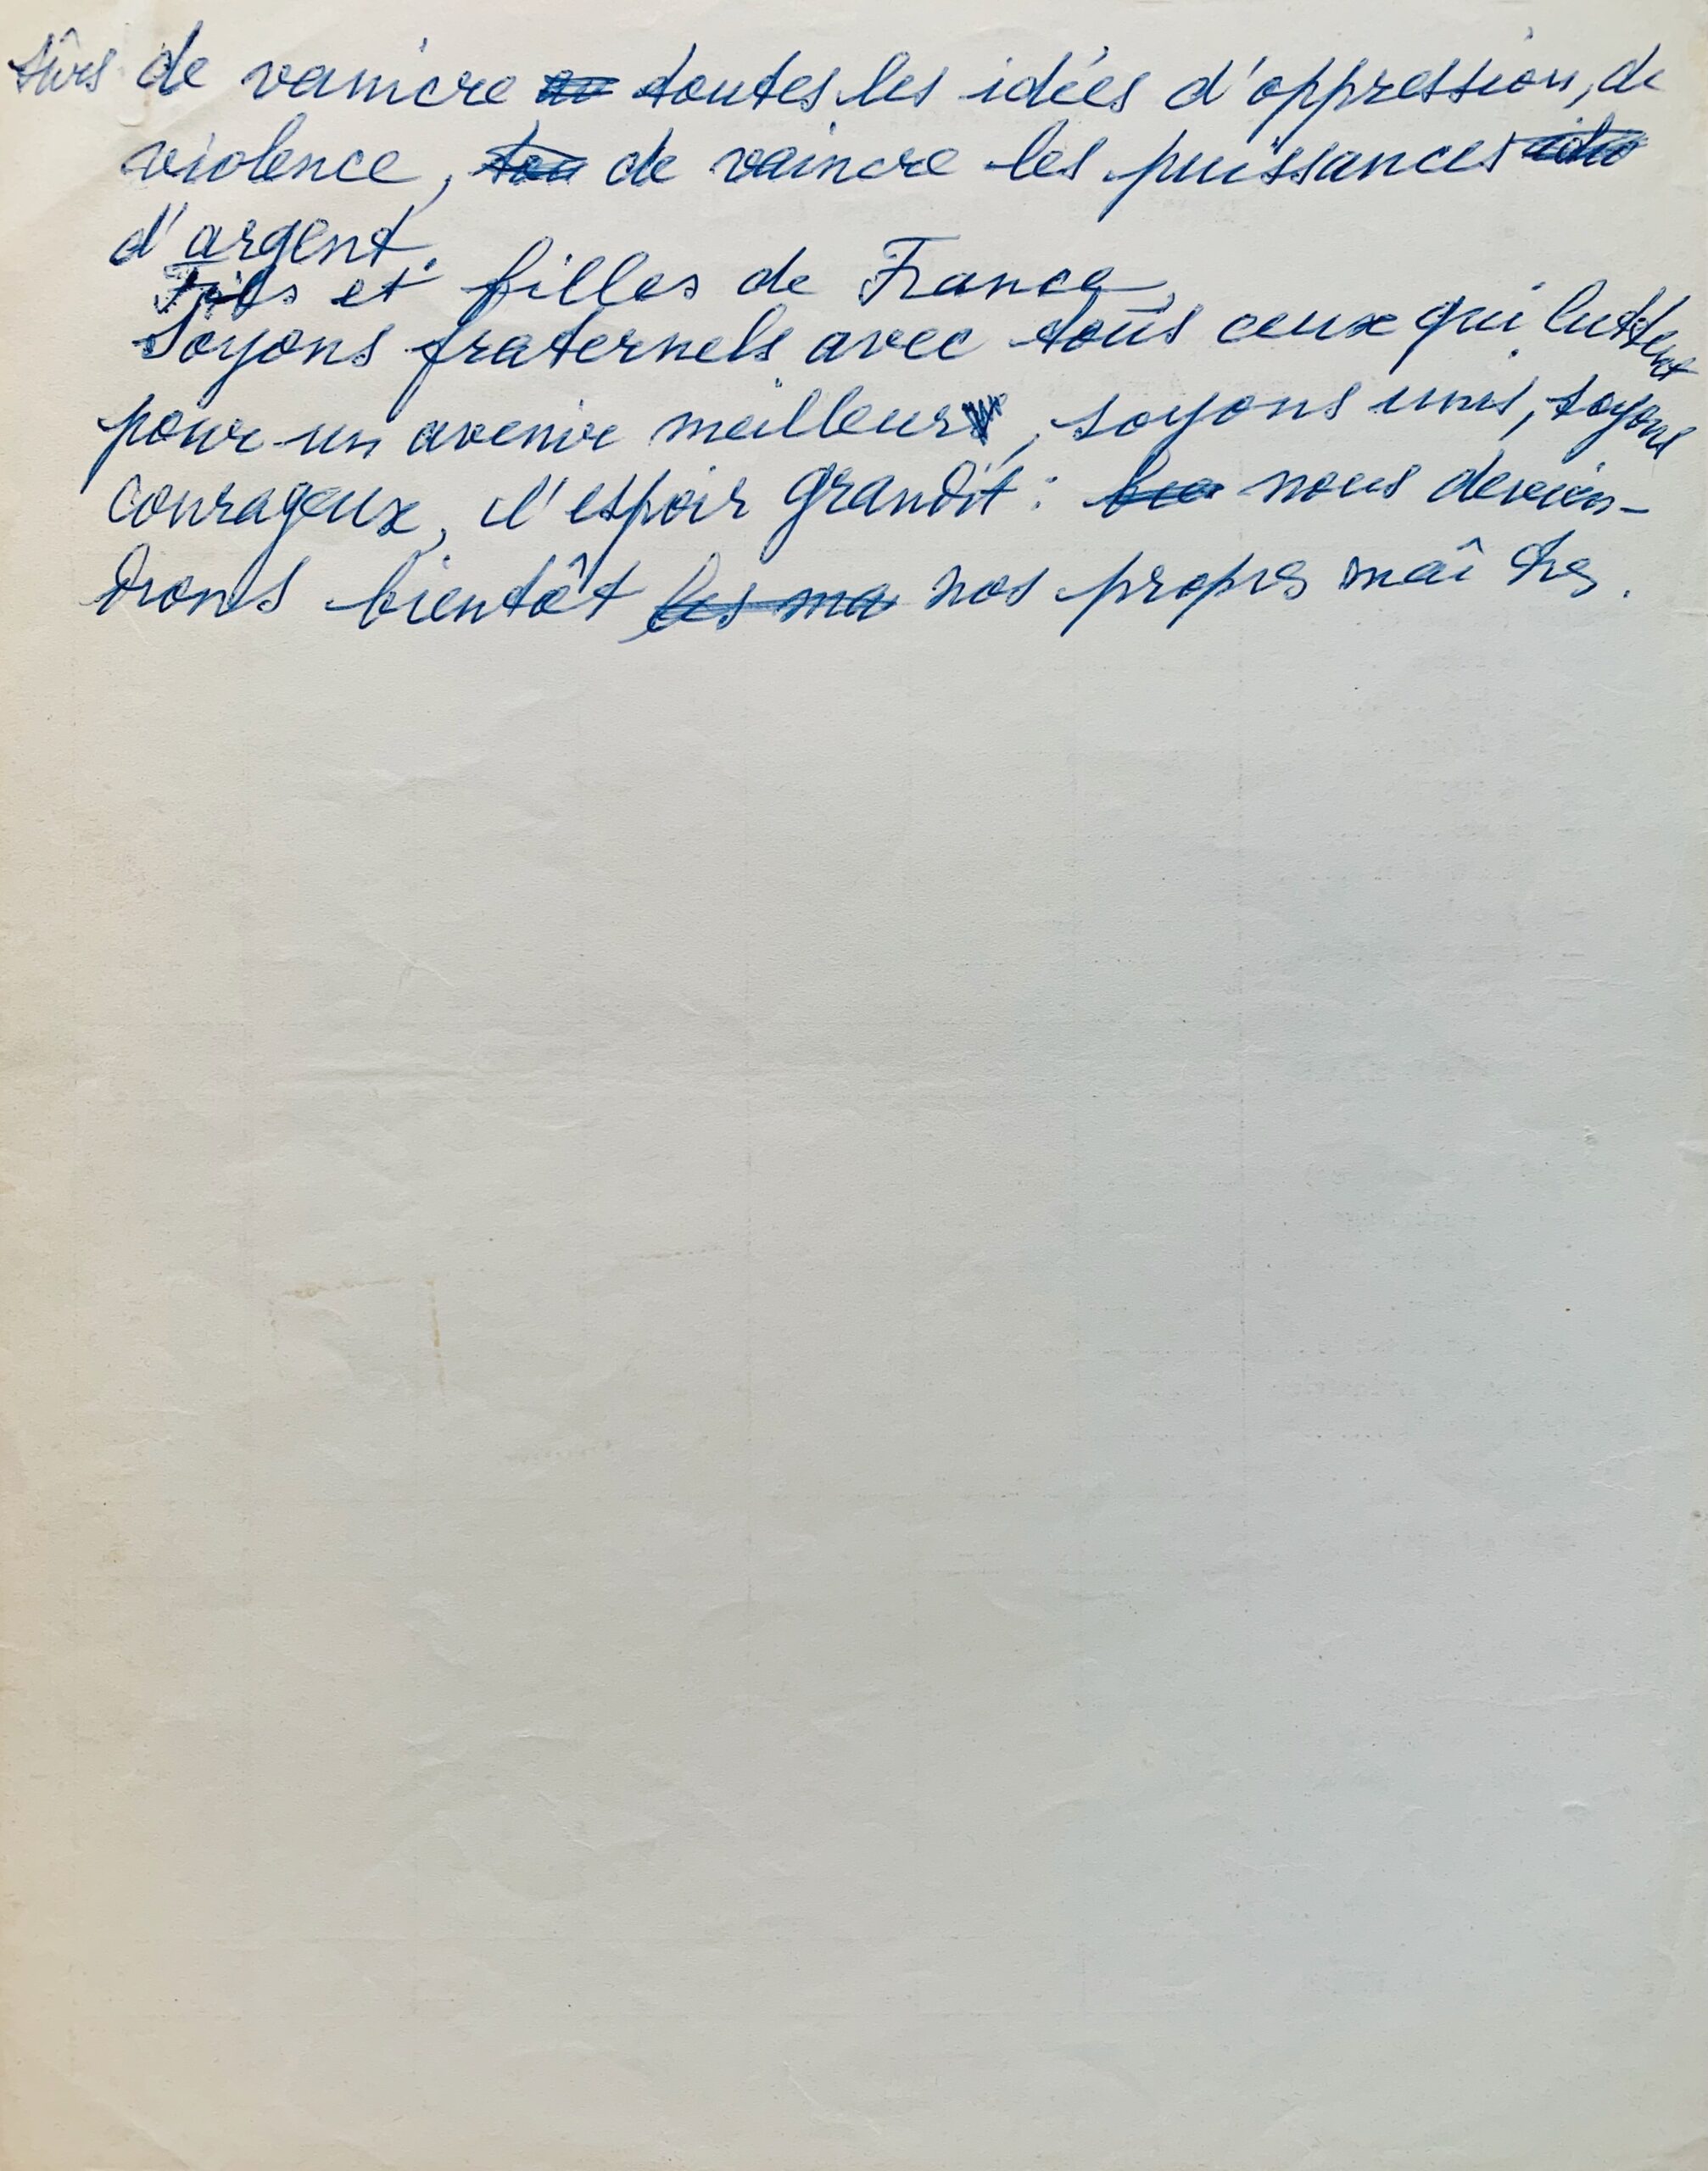 sûrs de vaincre toutes les idées d'oppression, de
violence, de vaincre les puissances
d'argent.
Fils et filles de France,
Soyons fraternels avec tous ceux qui luttent
pour un avenir meilleur, soyons unis, soyons
courageux, l'espoir grandit : nous devien-
drons bientôt les ma nos propres maîtres.